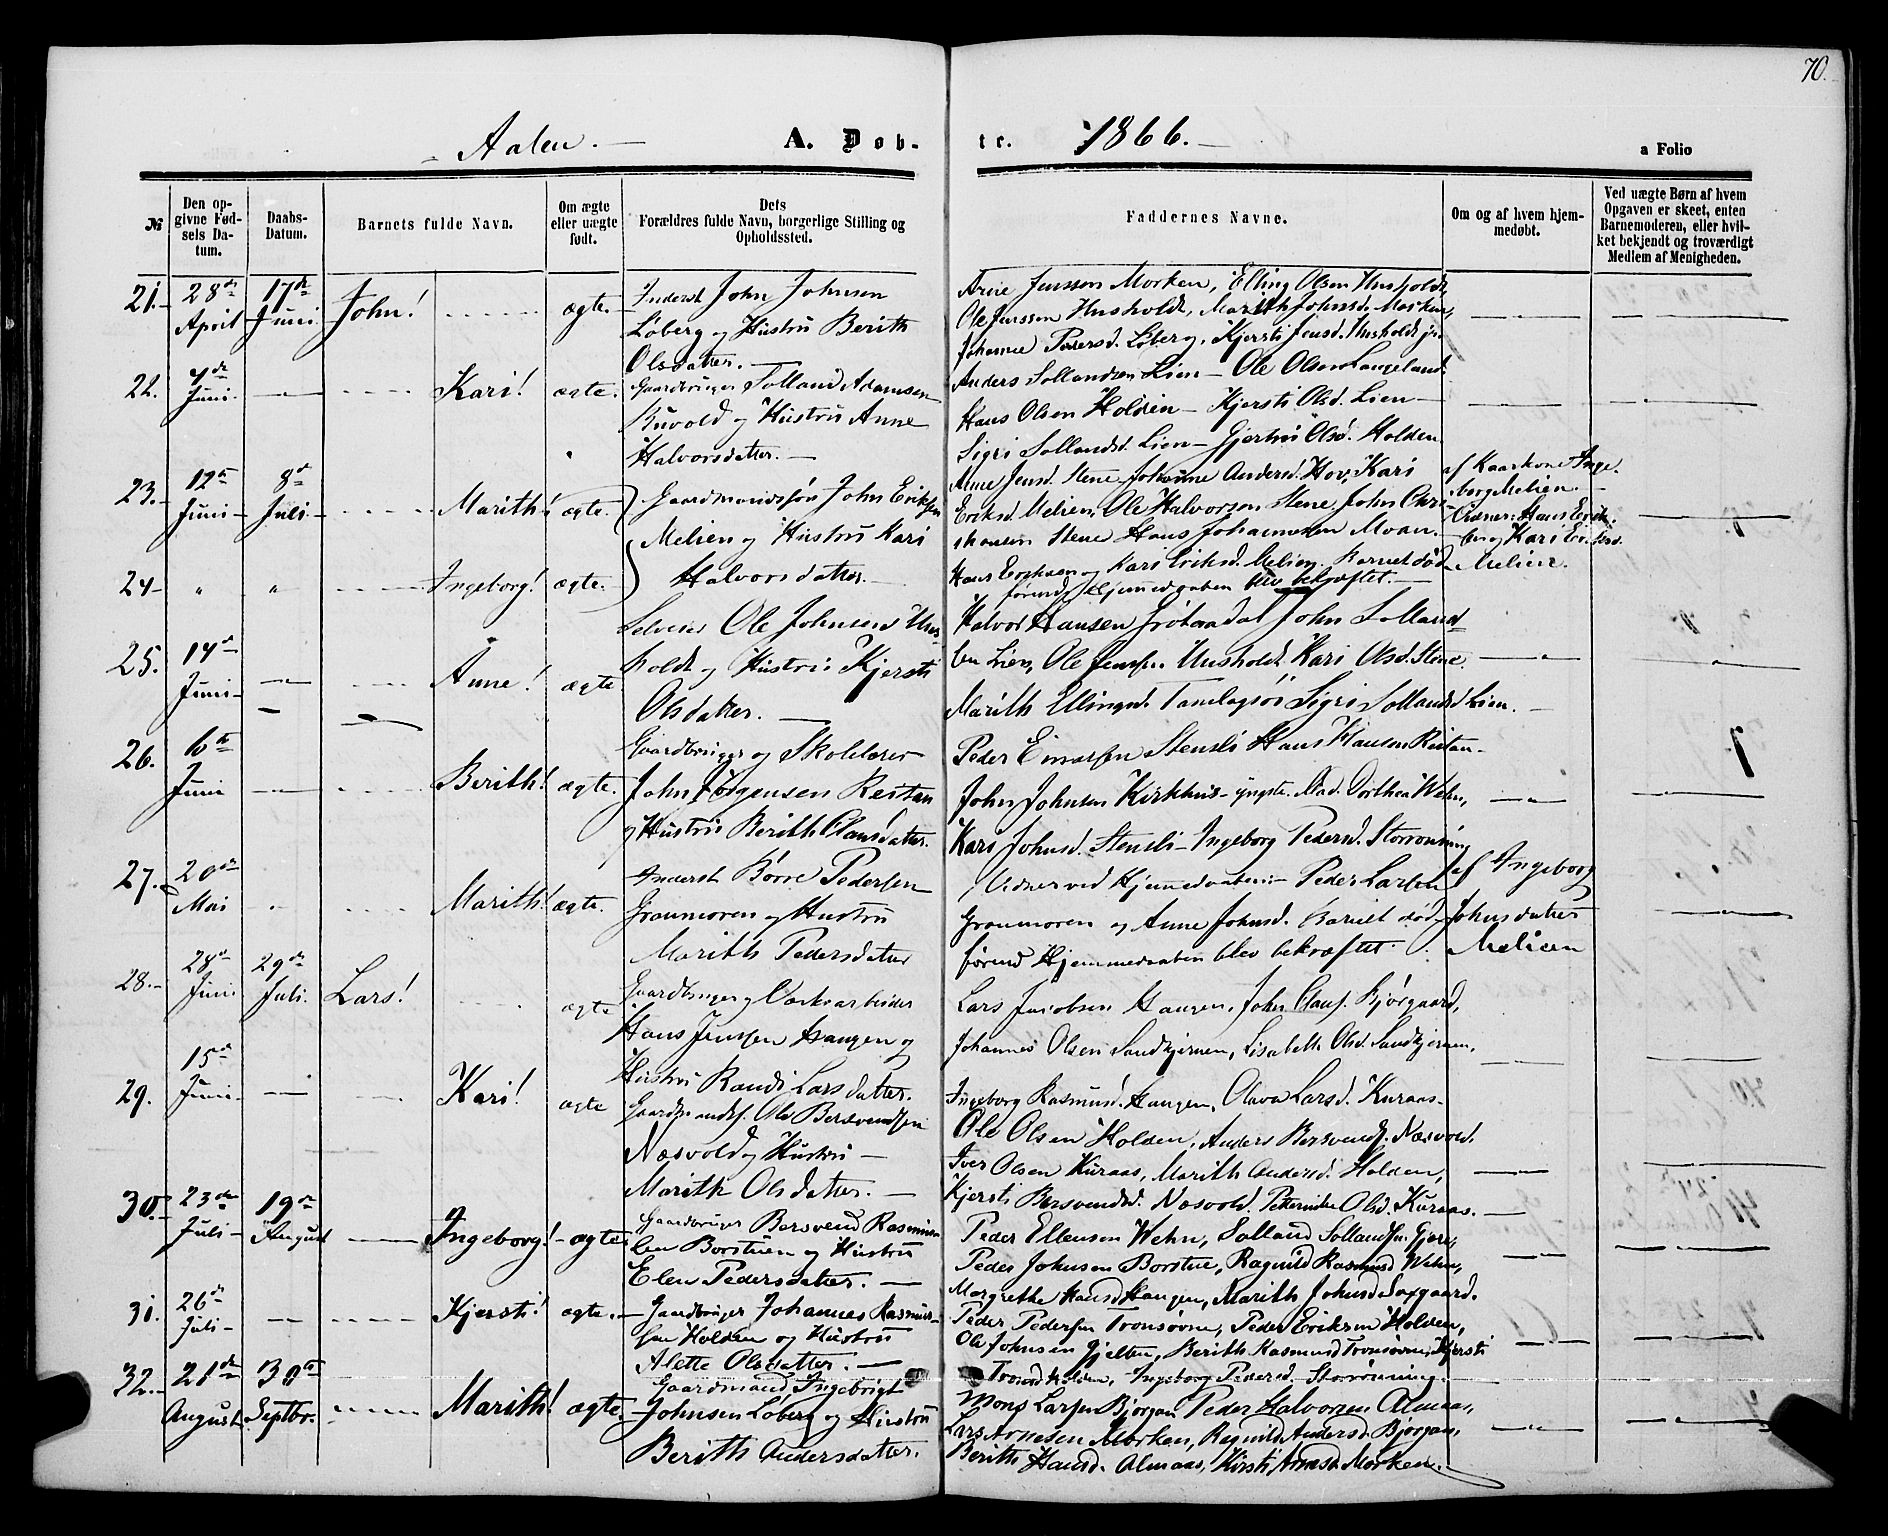 70.
Aalen.
A. Døb-
te.
1866.
a Folio
№
Den op-
givne Fød-
sels Da-
tum.
Daabs-
Datum.
Barnets fulde Navn.
Om ægte
eller uægte
født.
Dets
Forældres fulde Navn, borgerlige Stilling og
Opholdssted.
Faddernes Navne.
Om og af hvem hjem-
medøbt.
Ved uægte Børn af hvem
Opgaven er skeet, enten
Barnemoderen, eller hvil-
ket bekjendt og troværdigt
Medlem af Menigheden.
21.
28de
April
17de
Juni
John!
ægte.
Inderst John Johnsen
Løberg og Hustru Berith
Olsdatter.
Arne Jensson Morken, Elling Olsen Husholdt,
Ole Jensson Husholdt, Marith Johnsd. Morken,
Johanne Pedersd. Løberg, Kjersti Jensd. Husholdt
22.
Juni
Kari!
ægte.
Gaardbruger Solland Adamsen
og Hustru Anne
Halvorsdatter.
Anders Sollandsen Lien – Ole Olsen Langeland
Hans Olsen Holden – Kjersti Olsd. Lien
Sigri Sollandsd. Lien – Gjertru Olsd. Holden
23.
12te
Juni
8de
Juli
Marith!
ægte.
Gaardmandssøn John Eriksen
Melien og Hustru Kari
Halvorsdatter.
Anne Jensd. Stene Johanne Andersd. Hov, Kari
Eriksd. Melien, Ole Halvorsen Stene, John Chri-
stiansen Stene Hans Johannesen Moan.
af Kaarkone Inge-
borg Melien.
Vidner: Hans Erik-
sen og Kari Eriksd.
Melien.
24
"
"
Ingeborg!
ægte.
Hans Eriksen og Kari Eriksd. Melien. Barnet død
førend Hjemmedaaben blev bekræftet.
25.
14de
Juni
Anne!
ægte
Selveier Ole Johnsen Hus-
holdt og Hustru Kjersti
Olsdatter.
Halvor Hansen Grøtaadal John Solland-
sen Lien, Ole Jensen Husholdt Kari Olsd. Stene
Marith Ellingsd. Sigri Sollandsd Lien.
26.
6te
Juni
Berith!
ægte.
Gaardbruger og Skolelærer
John Jørgensen Reitan
og Hustru Berith Clausdatter.
Peder Einarsen Stensli Hans Hansen Reitan
John Johnsen Kirkhus yngste. Mad. Dorthea Wehn,
Kari Johnsd. Stensli – Ingeborg Pedersd. Storrønning
27.
20de
Mai
Marith!
ægte.
Inderst Børre Pedersen
Granmoren og Hustru
Marith Pedersdatter
Vidner ved Hjemmedaaben: Peder Larsen
Granmoren og Anne Johnsd. Barnet død
førend Hjemmedaaben blev bekræftet.
af Ingeborg
Johnsdatter
Melien
28.
28de
Juni
29de
Juli.
Lars!
ægte
Gaardbruger og Værksarbeider
Hans Jensen Haugen og
Hustru Randi Larsdatter.
Lars Jacobsen Haugen, John Claus. Bjørgaard,
Johannes Olsen Sandkjernen, Lisabeth Olsd. Sandkjernen,
Ingeborg Rasmusd. Haugen, Olava Larsd. Kuraas
29.
15de
Juni
Kari!
ægte
Gaardmands. Ole Bersvendsen
Næsvold og Hustru
Marith Olsdatter.
Ole Olsen Holden, Anders Bersvends. Næsvold
Iver Olsen Kuraas, Marith Andersd. Holden,
Kjersti Bersvendsd. Næsvold. Pethernille Olsd. Kuraas.
30.
23de
Juli
19de
August
Ingeborg!
ægte.
Gaardbruger Bersvend Rasmus-
sen Borstuen og Hustru
Elen Pedersdatter.
Peder Ellensen Wehn, Solland Sollands. Gjære,
Peder Johnsen Borstue, Ragnild Rasmusd Wehn,
Margrethe Hansd Haugen, Marith Johnsd Saxgaard.
31.
26de
Juli
Kjersti!
ægte.
Gaardbruger Johannes Rasmus-
sen Holden og Hustru
Alette Olsdatter.
Peder Pedersen Tronsovne, Peder Eriksen Holden,
Ole Johnsen Gjelten, Berith Rasmusd Tronsovne, Kjersti
Tronsd Holden, Ingeborg Pedersd. Storrønning.
32.
21de
August
30te
Septbr.
Marith!
ægte.
Gaardmand Ingebrigt
Johnsen Løberg og Hustru
Berith Andersdatter.
Mons Larsen Bjørgan Peder Halvorsen Almaas,
Lars Arnesen Morken, Ragnild Andersd. Bjørgan,
Berith Hansd. Almaas, Kirsti Arnesd. Morken.